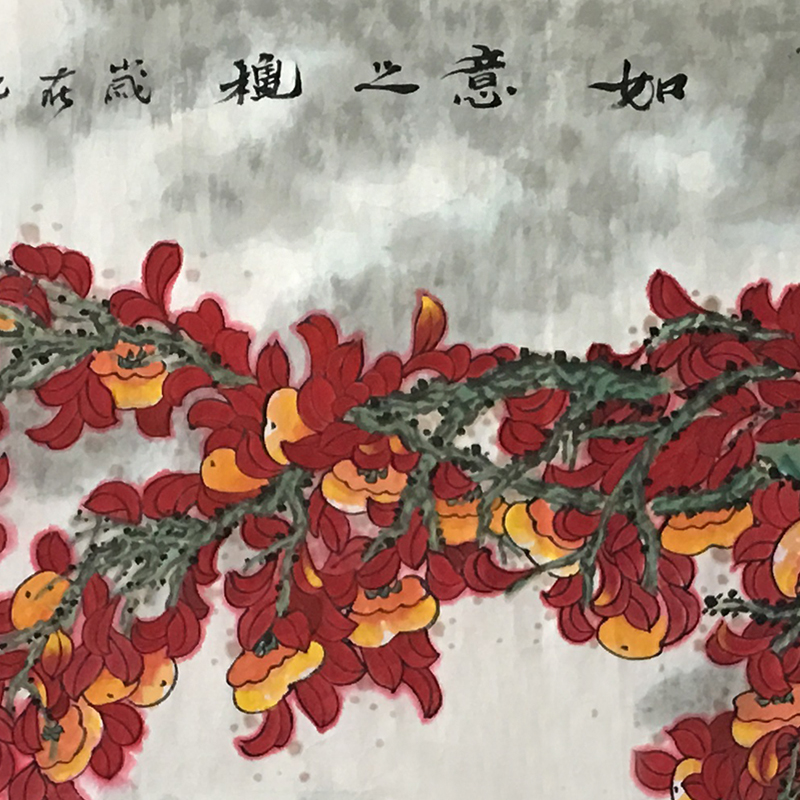 如意之穐 歲在